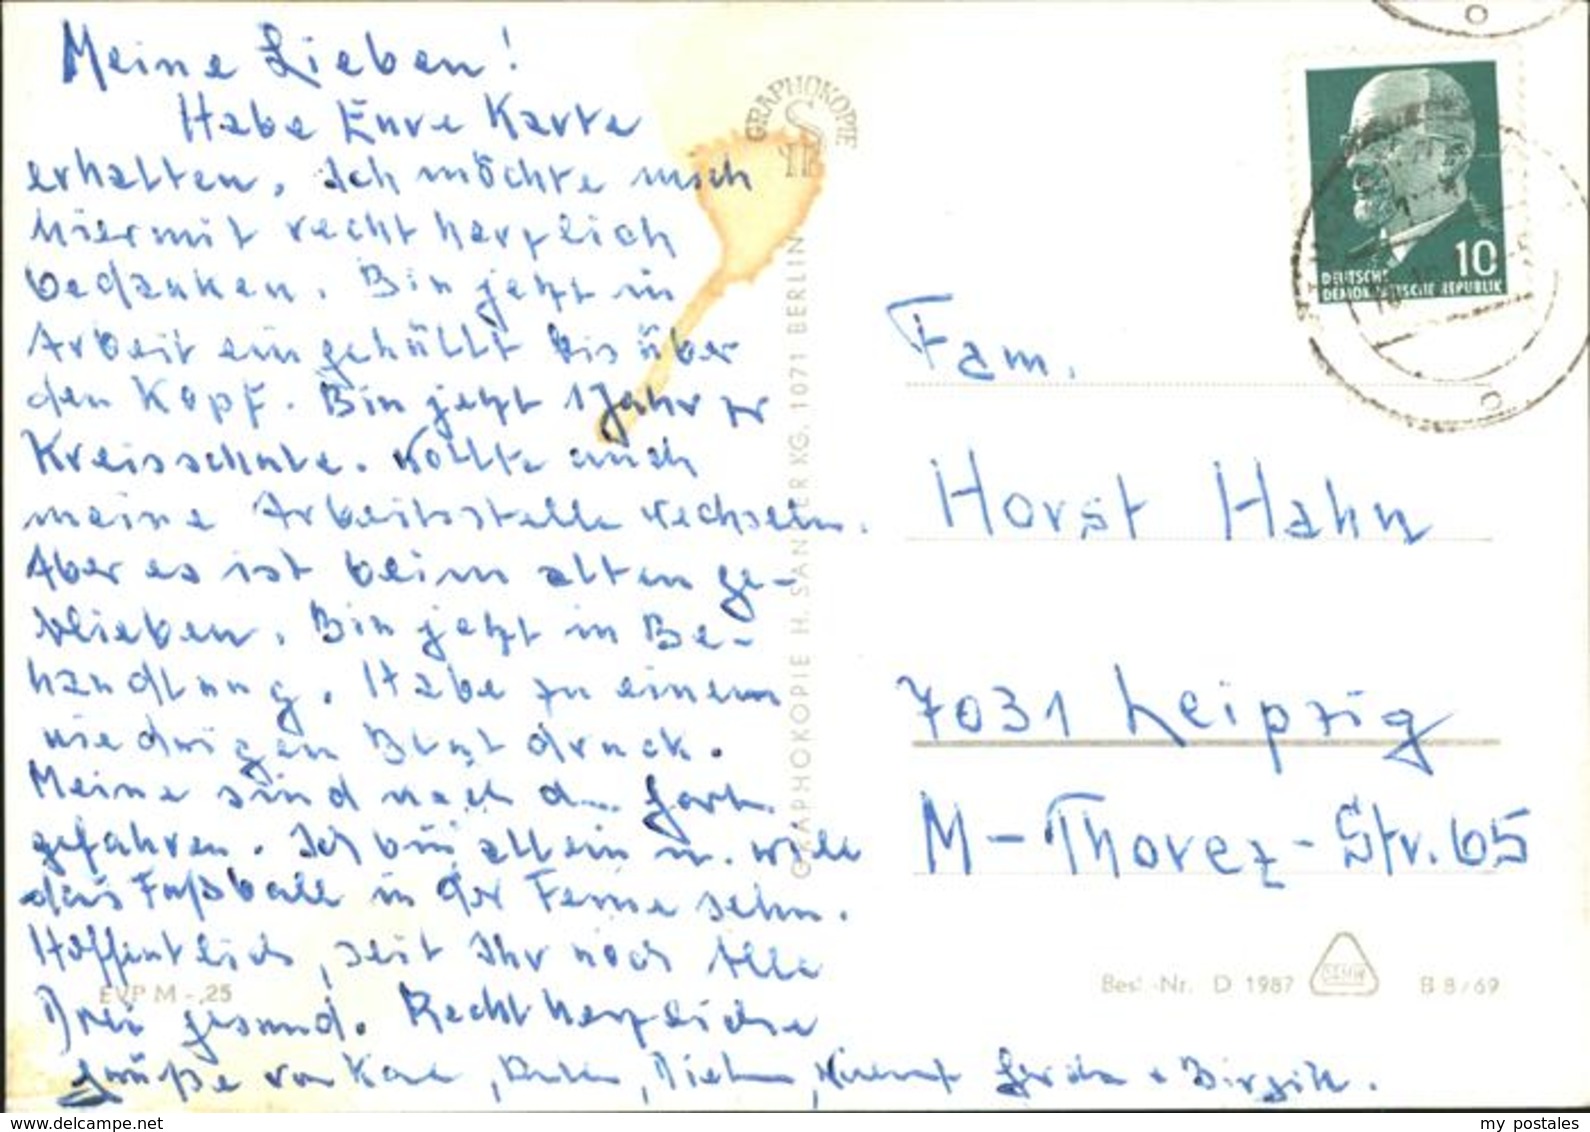 Meine Lieben!
Habe Eure Karte
erhalten. Ich möchte mich
hiermit recht herzlich
bedanken. Bin jetzt in
Arbeit eingehüllt bis über
den Kopf. Bin jetzt 1 Jahr zr
Kreisschule. Wollte auch
meine Arbeitsstelle wechseln.
Aber es ist beim alten ge-
blieben. Bin jetzt in Be-
handlung. Habe zu einem
niedrigen Blutdruck.
Meine sind nach d...
gefahren. Ich bin allein u. will
das Fußball in der Ferne sehn.
Hoffentlich, seit Ihr noch Alle
Drei gesund. Recht herzliche
Grüße von Gerda + Birgitt.
EVP M -,25
GRAPHOKOPIE
GRAPHOKOPIE H. SANDER KG. 1071 BERLIN
10
DEUTSCHE
DEMOKRATISCHE REPUBLIK
Fam.
Horst Hahn
7031 Leipzig
M-Thorez-Str. 65
Best.-Nr. D 1987
B 8/69
my postales